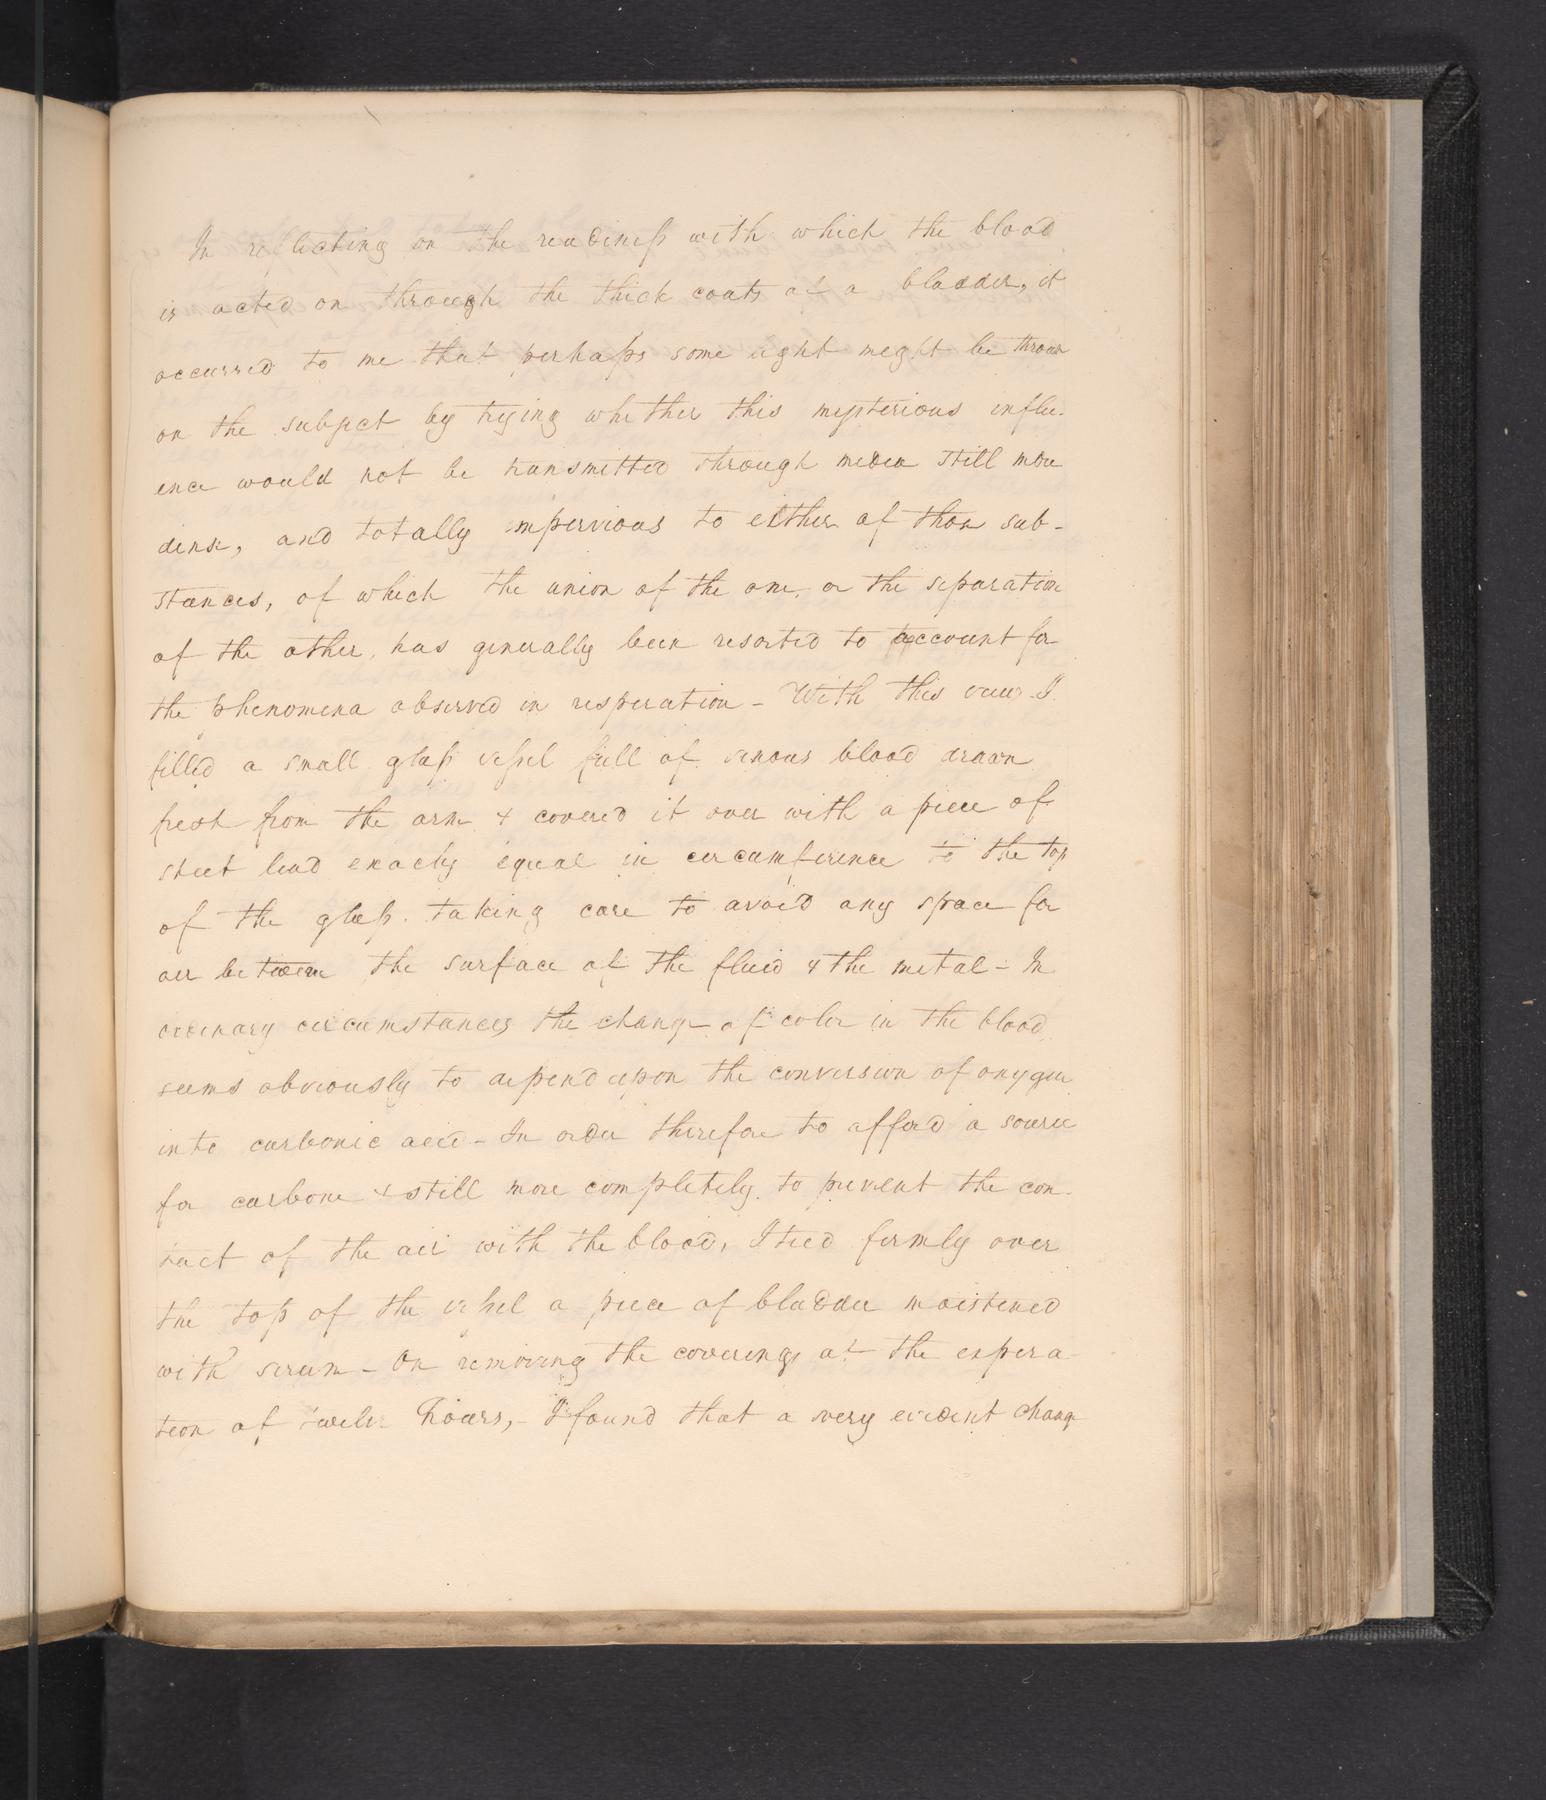 In reflecting on the readiness with which the blood
is acted on through the thick coats of a bladder, it
occurred to me that perhaps some light might be thrown
on the subject by trying whether this mysterious influ-
ence would not be transmitted through media still more
dense, and totally impervious to either of those sub-
stances, of which the union of the one, or the separation
of the other, has generally been resorted to account for
the phenomena observed in respiration - With this view I
filled a small glass vessel full of venous blood drawn
fresh from the arm & covered it over with a piece of
sheet lead exactly equal in circumference to the top
of the glass. taking care to avoid any space for
air between the surface of the fluid & the metal - In
ordinary circumstances the change of color in the blood
seems obviously to depend upon the conversion of oxygen
into carbonic acid - In order therefore to afford a source
for carbone & still more completely to prevent the con-
tact of the air with the blood, I tied firmly over
the top of the vessel a piece of bladder moistened
with serum - On removing the coverings at the expira-
tion of twelve hours, - I found that a very evident change